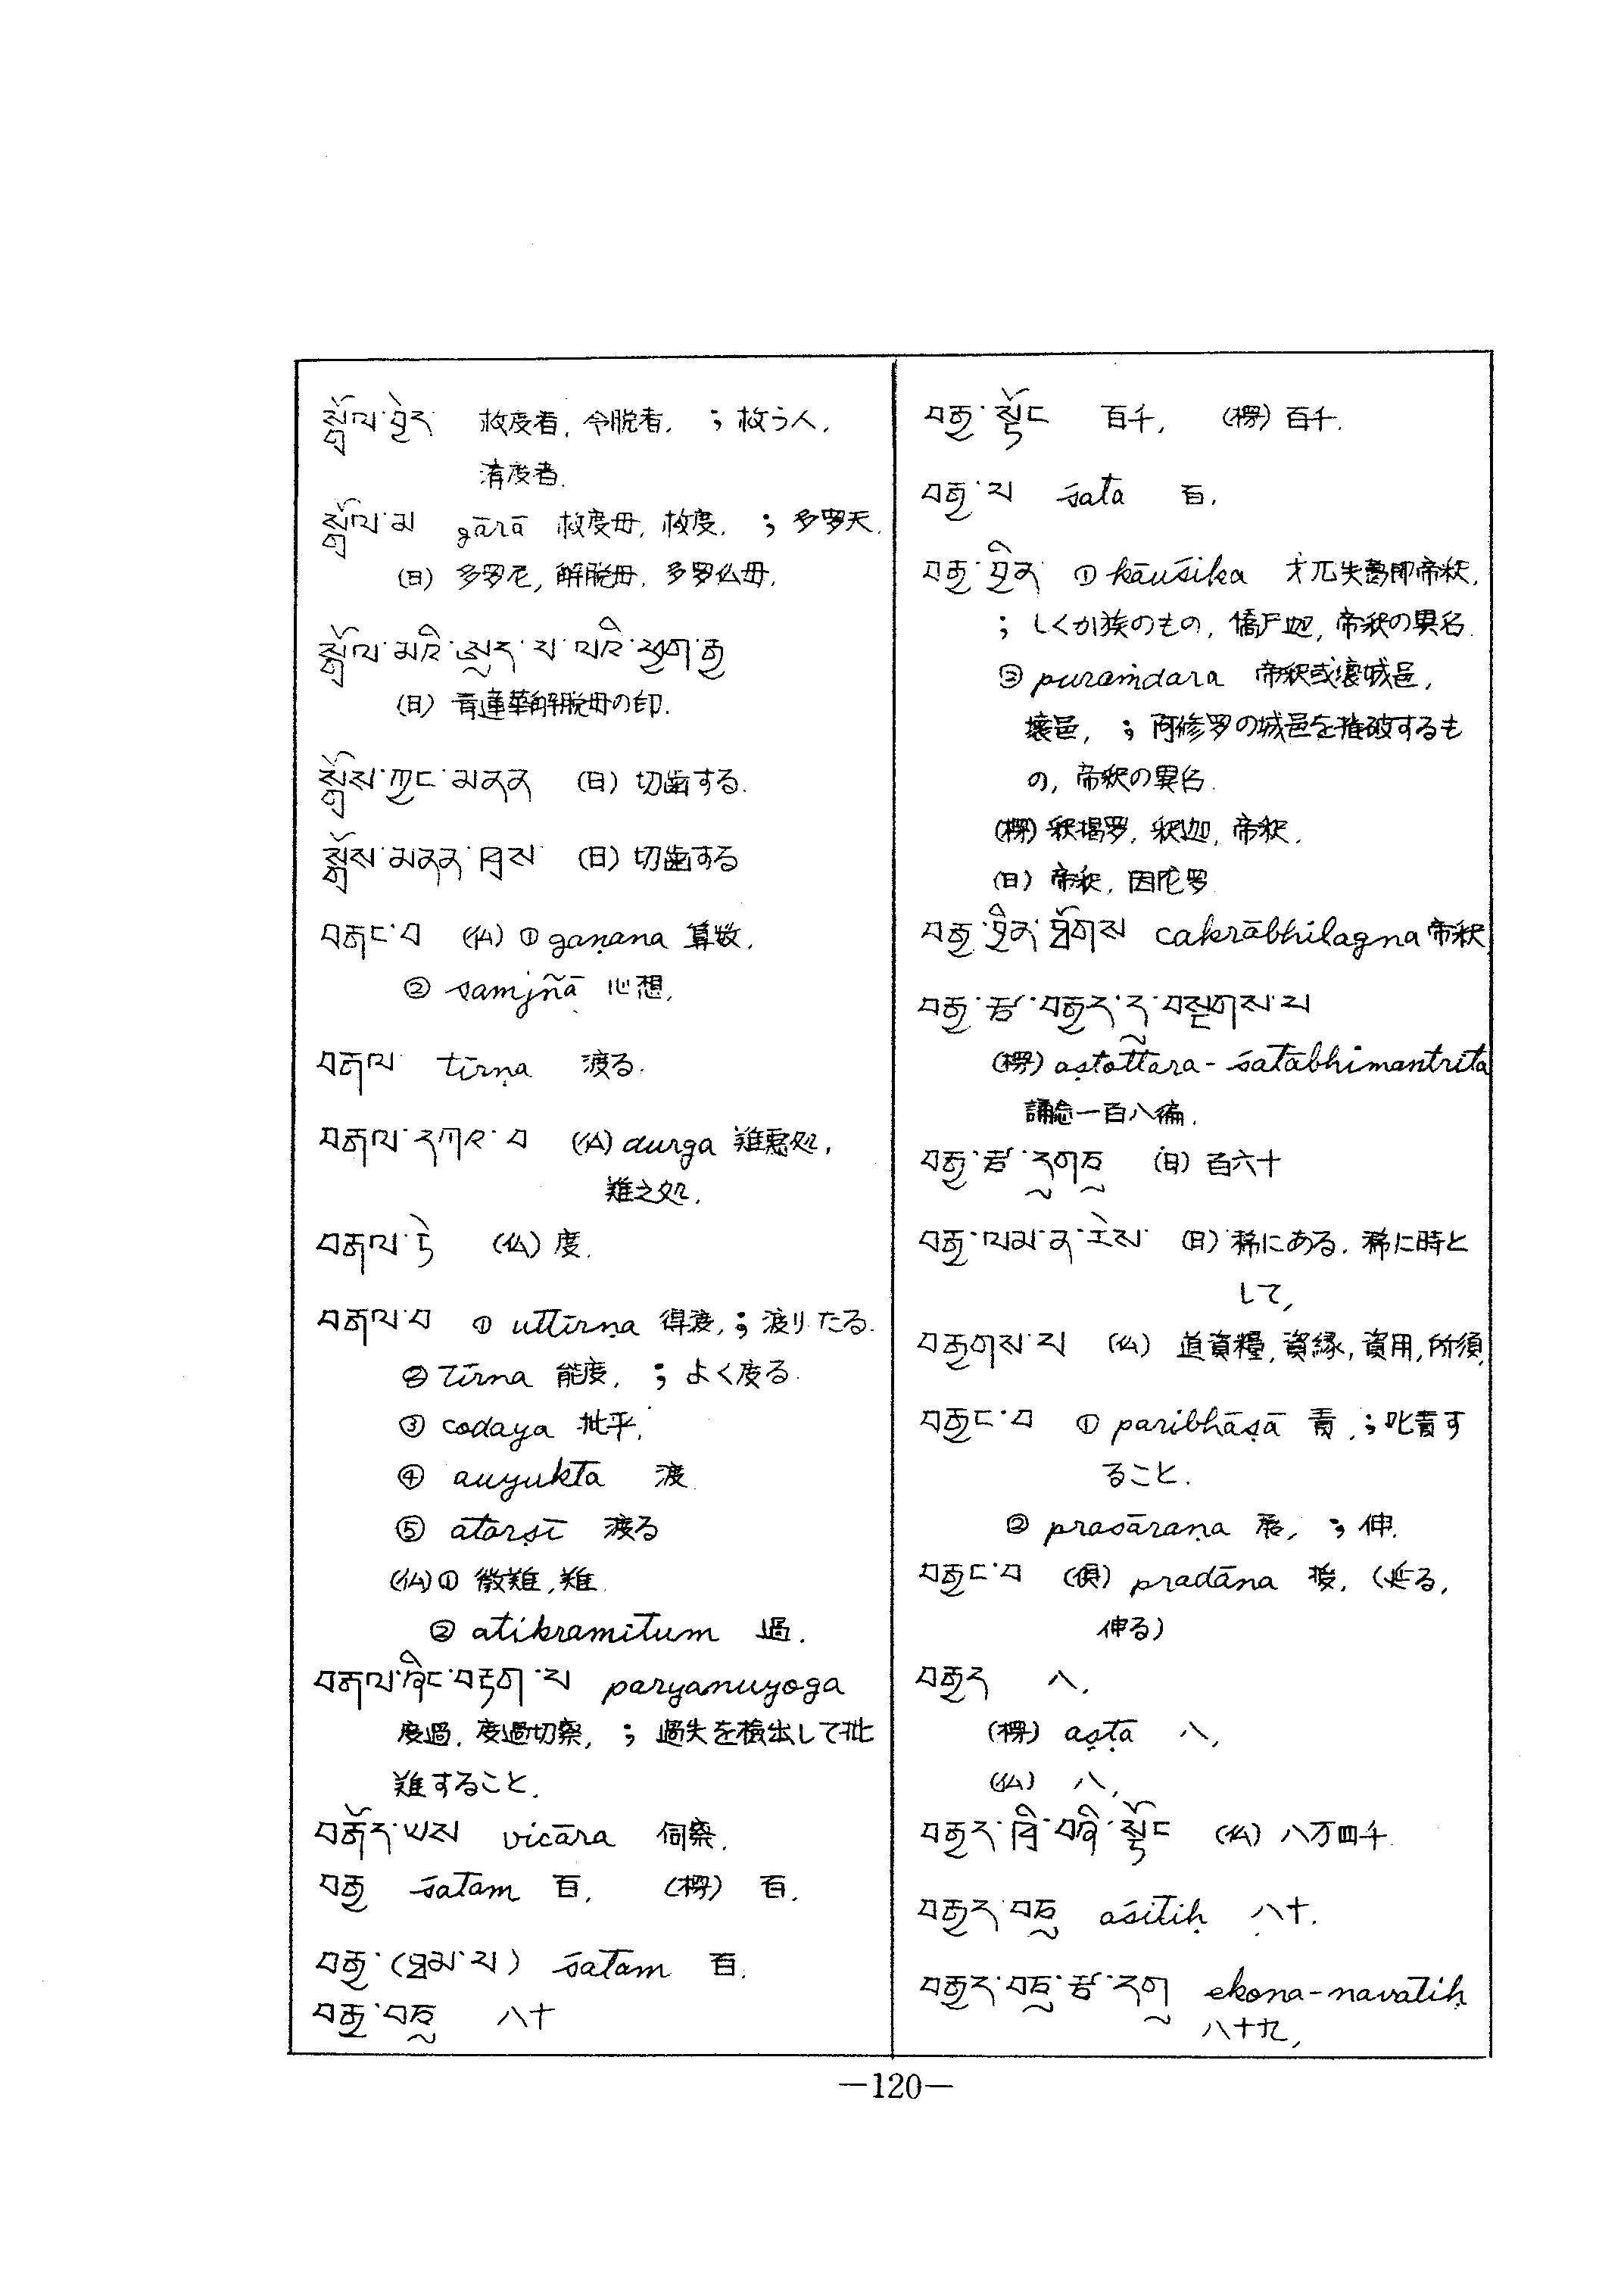 སྒྲོལ་བྱེད 救度者, 令脱者, ; 救う人,
済度者.
སྒྲོལ་མ gārā 救度母, 救度. ; 多罗天.
(日) 多罗尼, 解脱母, 多罗仏母.
སྒྲོལ་མའི་ཨུཏ་པ་ལའི་ཕྱག་རྒྱ
(日) 青蓮華解脱母の印.
(日) 切歯する.
(日) 切歯する
བརྩང་བ (仏) ① gaṇana 算数.
② samjñā 心想.
བརྒལ tīrṇa 渡る.
བརྒལ་དཀའ་བ (仏) durga 難悪処,
難之処.
བརྒལ་ཏེ (仏) 度.
བརྒལ་བ ① uttīrṇa 得渡, ; 渡りたる.
② tīrna 能度, ; よく度る.
③ codaya 批平.
④ auyukta 渡
⑤ atarṣī 渡る
(仏) ① 徴難, 難.
② atikramitum 過.
བརྒལ་ཞིང་བརྟག་པ paryanuyoga
度過, 度過切察, ; 過失を検出して批
難すること.
vicāra 伺察.
བརྒྱ śatam 百, (楞) 百.
བརྒྱ་(ཐམ་པ) śatam 百.
བརྒྱ་བཅུ 八十
བརྒྱ་སྟོང 百千, (楞) 百千.
བརྒྱ་པ śata 百.
བརྒྱ་བྱིན ① kāuśika 才兀失葛即帝釈.
; しくか族のもの, 憍尸迦, 帝釈の異名.
② puraṁdara 帝釈或壊城邑,
壊邑, ; 阿修罗の城邑を摧破するも
の, 帝釈の異名.
(楞) 釈揭罗, 釈迦, 帝釈.
(日) 帝釈, 因陀罗
བརྒྱ་བྱིན་ཐོགས cakrābhilagna 帝釈
བརྒྱ་རྩ་བརྒྱད་དུ་བསྔགས་པ
(楞) aṣtottara-śatābhimantrita
誦念一百八徧.
བརྒྱ་རྩ་དྲུག་ཅུ (日) 百六十
བརྒྱ་ལམ་ན་ (日) 稀にある. 稀に時と
して,
བརྒྱགས་པ (仏) 道資糧, 資縁, 資用, 所須,
བརྒྱང་བ ① paribhāṣā 責, ; 叱責す
ること.
② prasāraṇa 展, ; 伸.
བརྒྱང་བ (倶) pradāna 授, (延る,
伸る)
བརྒྱད 八.
(楞) aṣṭa 八,
(仏) 八,
བརྒྱད་ཁྲི་བཞི་སྟོང (仏) 八万四千.
བརྒྱད་བཅུ aśitiḥ 八十.
བརྒྱད་བཅུ་རྩ་དགུ ekona-navatiḥ
八十九,
—120—